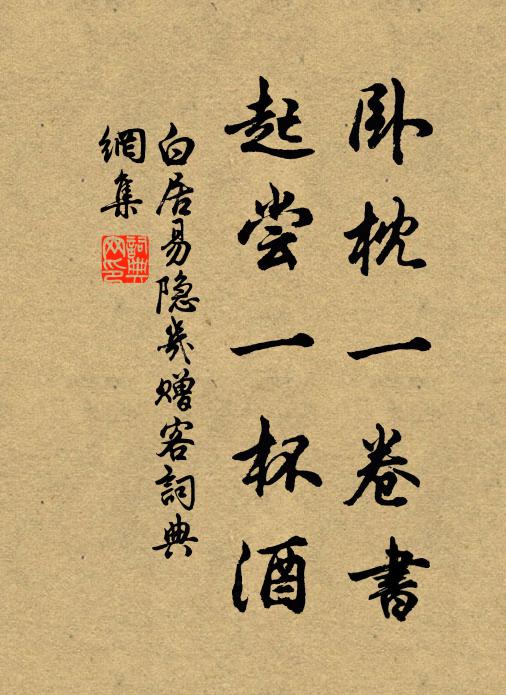 卧枕一卷書
起尝一杯酒
白居易隐几赠客詞典
網集
詞典网印